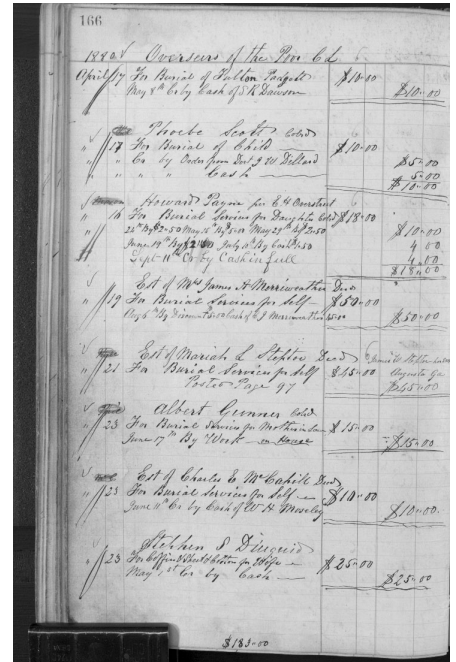 166
1880 Overseers of the Poor Cd
April 17 For Burial of Fulton Padgett $10.00
May 8th Cr by Cash of S R Dawson $10.00
Phoebe Scott Cold
" 17 For Burial of Child $10.00
" Cr by Order from Doct J W Dillard $5.00
" " " Cash 5.00
$10.00
Howard Payne per E H Overstreet
" 16 For Burial Services for Daughter Cold $18.00
26th By $2.50 May 15th By 5.00 May 29th By $2.50 $10.00
June 19th By July By Cash 4.00
Sept 11th Cr by Cash in full 4.00
$18.00
Est of Mrs James A Merriweather Decd
" 19 For Burial Services for Self $50.00
Aug 6th By Discount Cash of Merriweather $50.00
Est of Mariah L Stepton Decd James W
" 21 For Burial Services for Self $45.00 Augusta Ga
Posted Page 97 $45.00
Albert Gunner Cold
" 23 For Burial Services for Mother in Law $15.00
June 17th By Work on House $15.00
Est of Charles E McCahill Decd
" 23 For Burial Services for Self $10.00
June 11th Cr by Cash of W H Moseley $10.00
Stephen S Diuguid
" 23 For Coffin & for Wife $25.00
May 1st Cr by Cash $25.00
$183.00